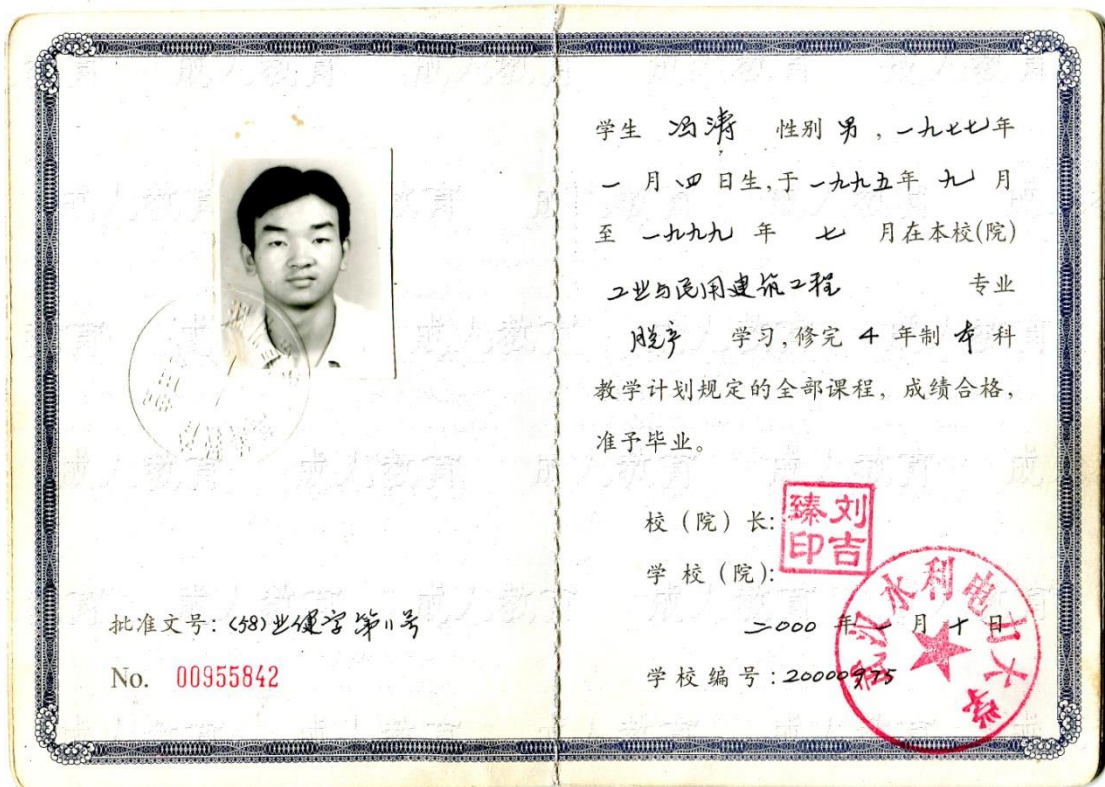 批准文号:(58)业健字第11号
No. 00955842
学生 冯涛 性别 男,一九七七年
一月四日生,于一九九五年九月
至一九九九年 七 月在本校(院)
工业与民用建筑工程 专业
脱产 学习,修完 4 年制 本科
教学计划规定的全部课程,成绩合格,
准予毕业。
校(院)长:
刘吉臻印
学校(院):
武汉水利电力大学
二000年一月十日
学校编号:20000975
成人教育